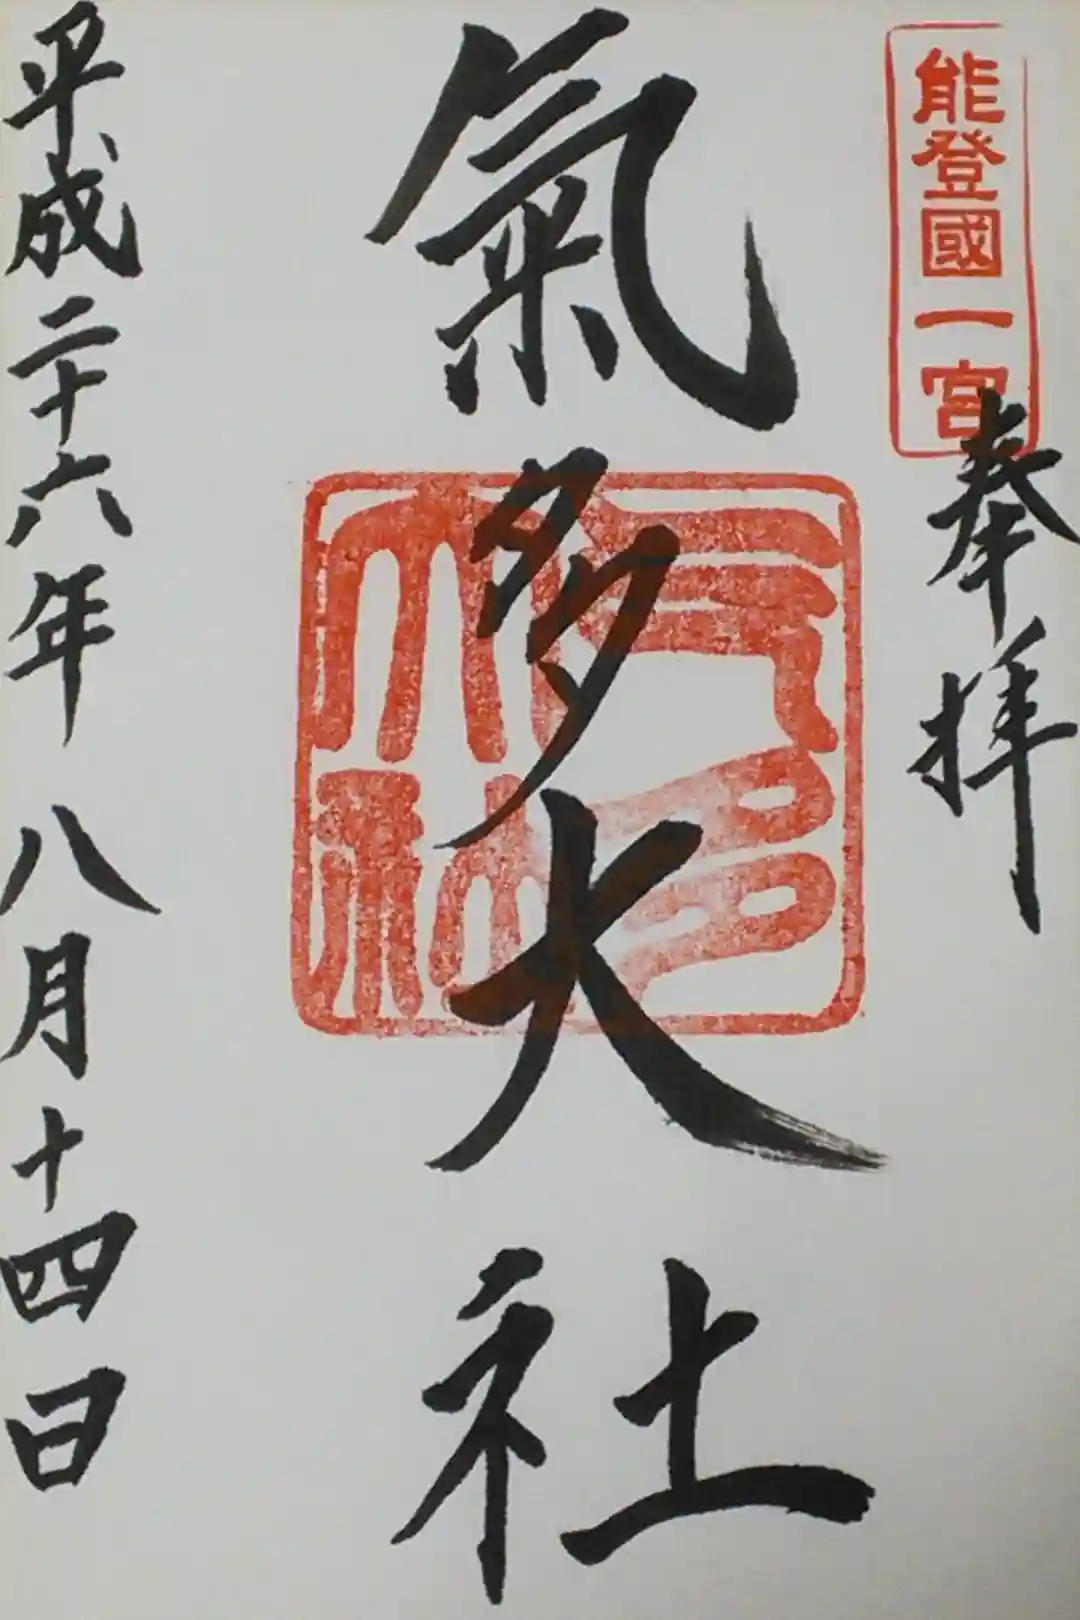 能登國一宮
奉拝
氣多大社
氣多大社
平成二十六年八月十四日